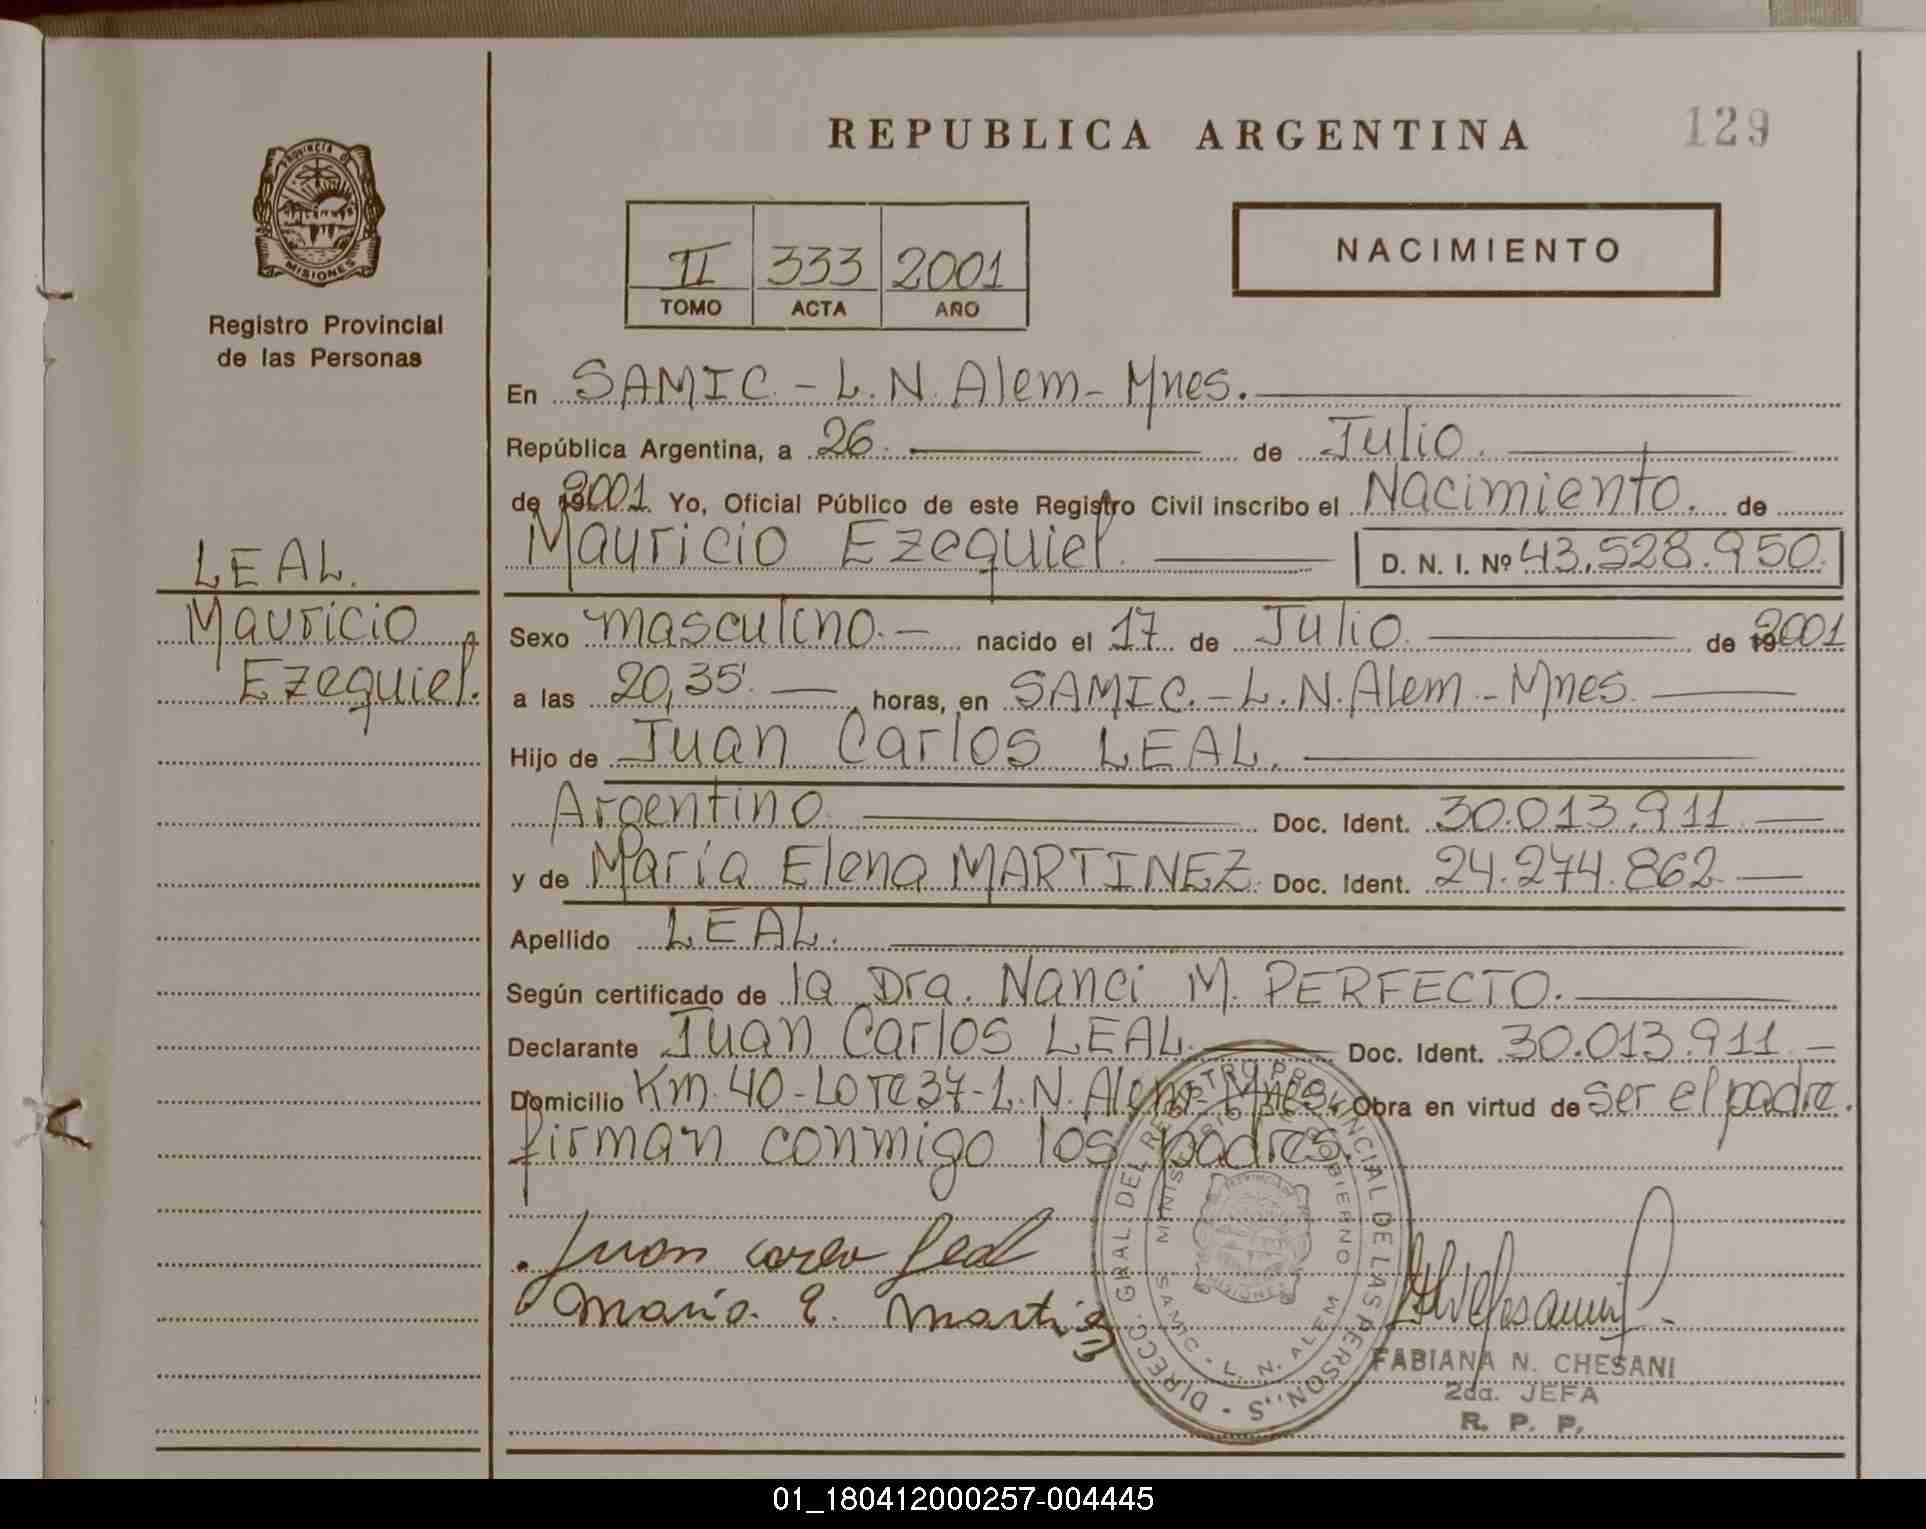 REPUBLICA ARGENTINA
129
PROVINCIA DE
MISIONES
Registro Provincial
de las Personas
II 333 2001
TOMO ACTA AÑO
NACIMIENTO
En SAMIC.-L.N.Alem-Mnes.
República Argentina, a 26 de Julio.
de 2001. Yo, Oficial Público de este Registro Civil inscribo el Nacimiento. de
Mauricio Ezequiel. D. N. I. Nº 43.528.950.
LEAL.
Mauricio
Ezequiel.
Sexo masculino.- nacido el 17 de Julio. de 2001
a las 20,35'. horas, en SAMIC.-L.N.Alem.-Mnes.
Hijo de Juan Carlos LEAL.
Argentino. Doc. Ident. 30.013.911
y de María Elena MARTINEZ. Doc. Ident. 24.274.862
Apellido LEAL.
Según certificado de la Dra. Nanci M. PERFECTO.
Declarante Juan Carlos LEAL. Doc. Ident. 30.013.911
Domicilio Km. 40-Lote 37-L.N.Alem-Mnes. Obra en virtud de ser el padre.
firman conmigo los padres.
Juan Carlos Leal
Maria E. Martinez
DIRECC. GRAL. DEL REGISTRO PROVINCIAL DE LAS PERSON.,S
MINISTERIO DE GOBIERNO
SAMIC - L. N. ALEM
MISIONES
FABIANA N. CHESANI
2da. JEFA
R. P. P.
01_180412000257-004445